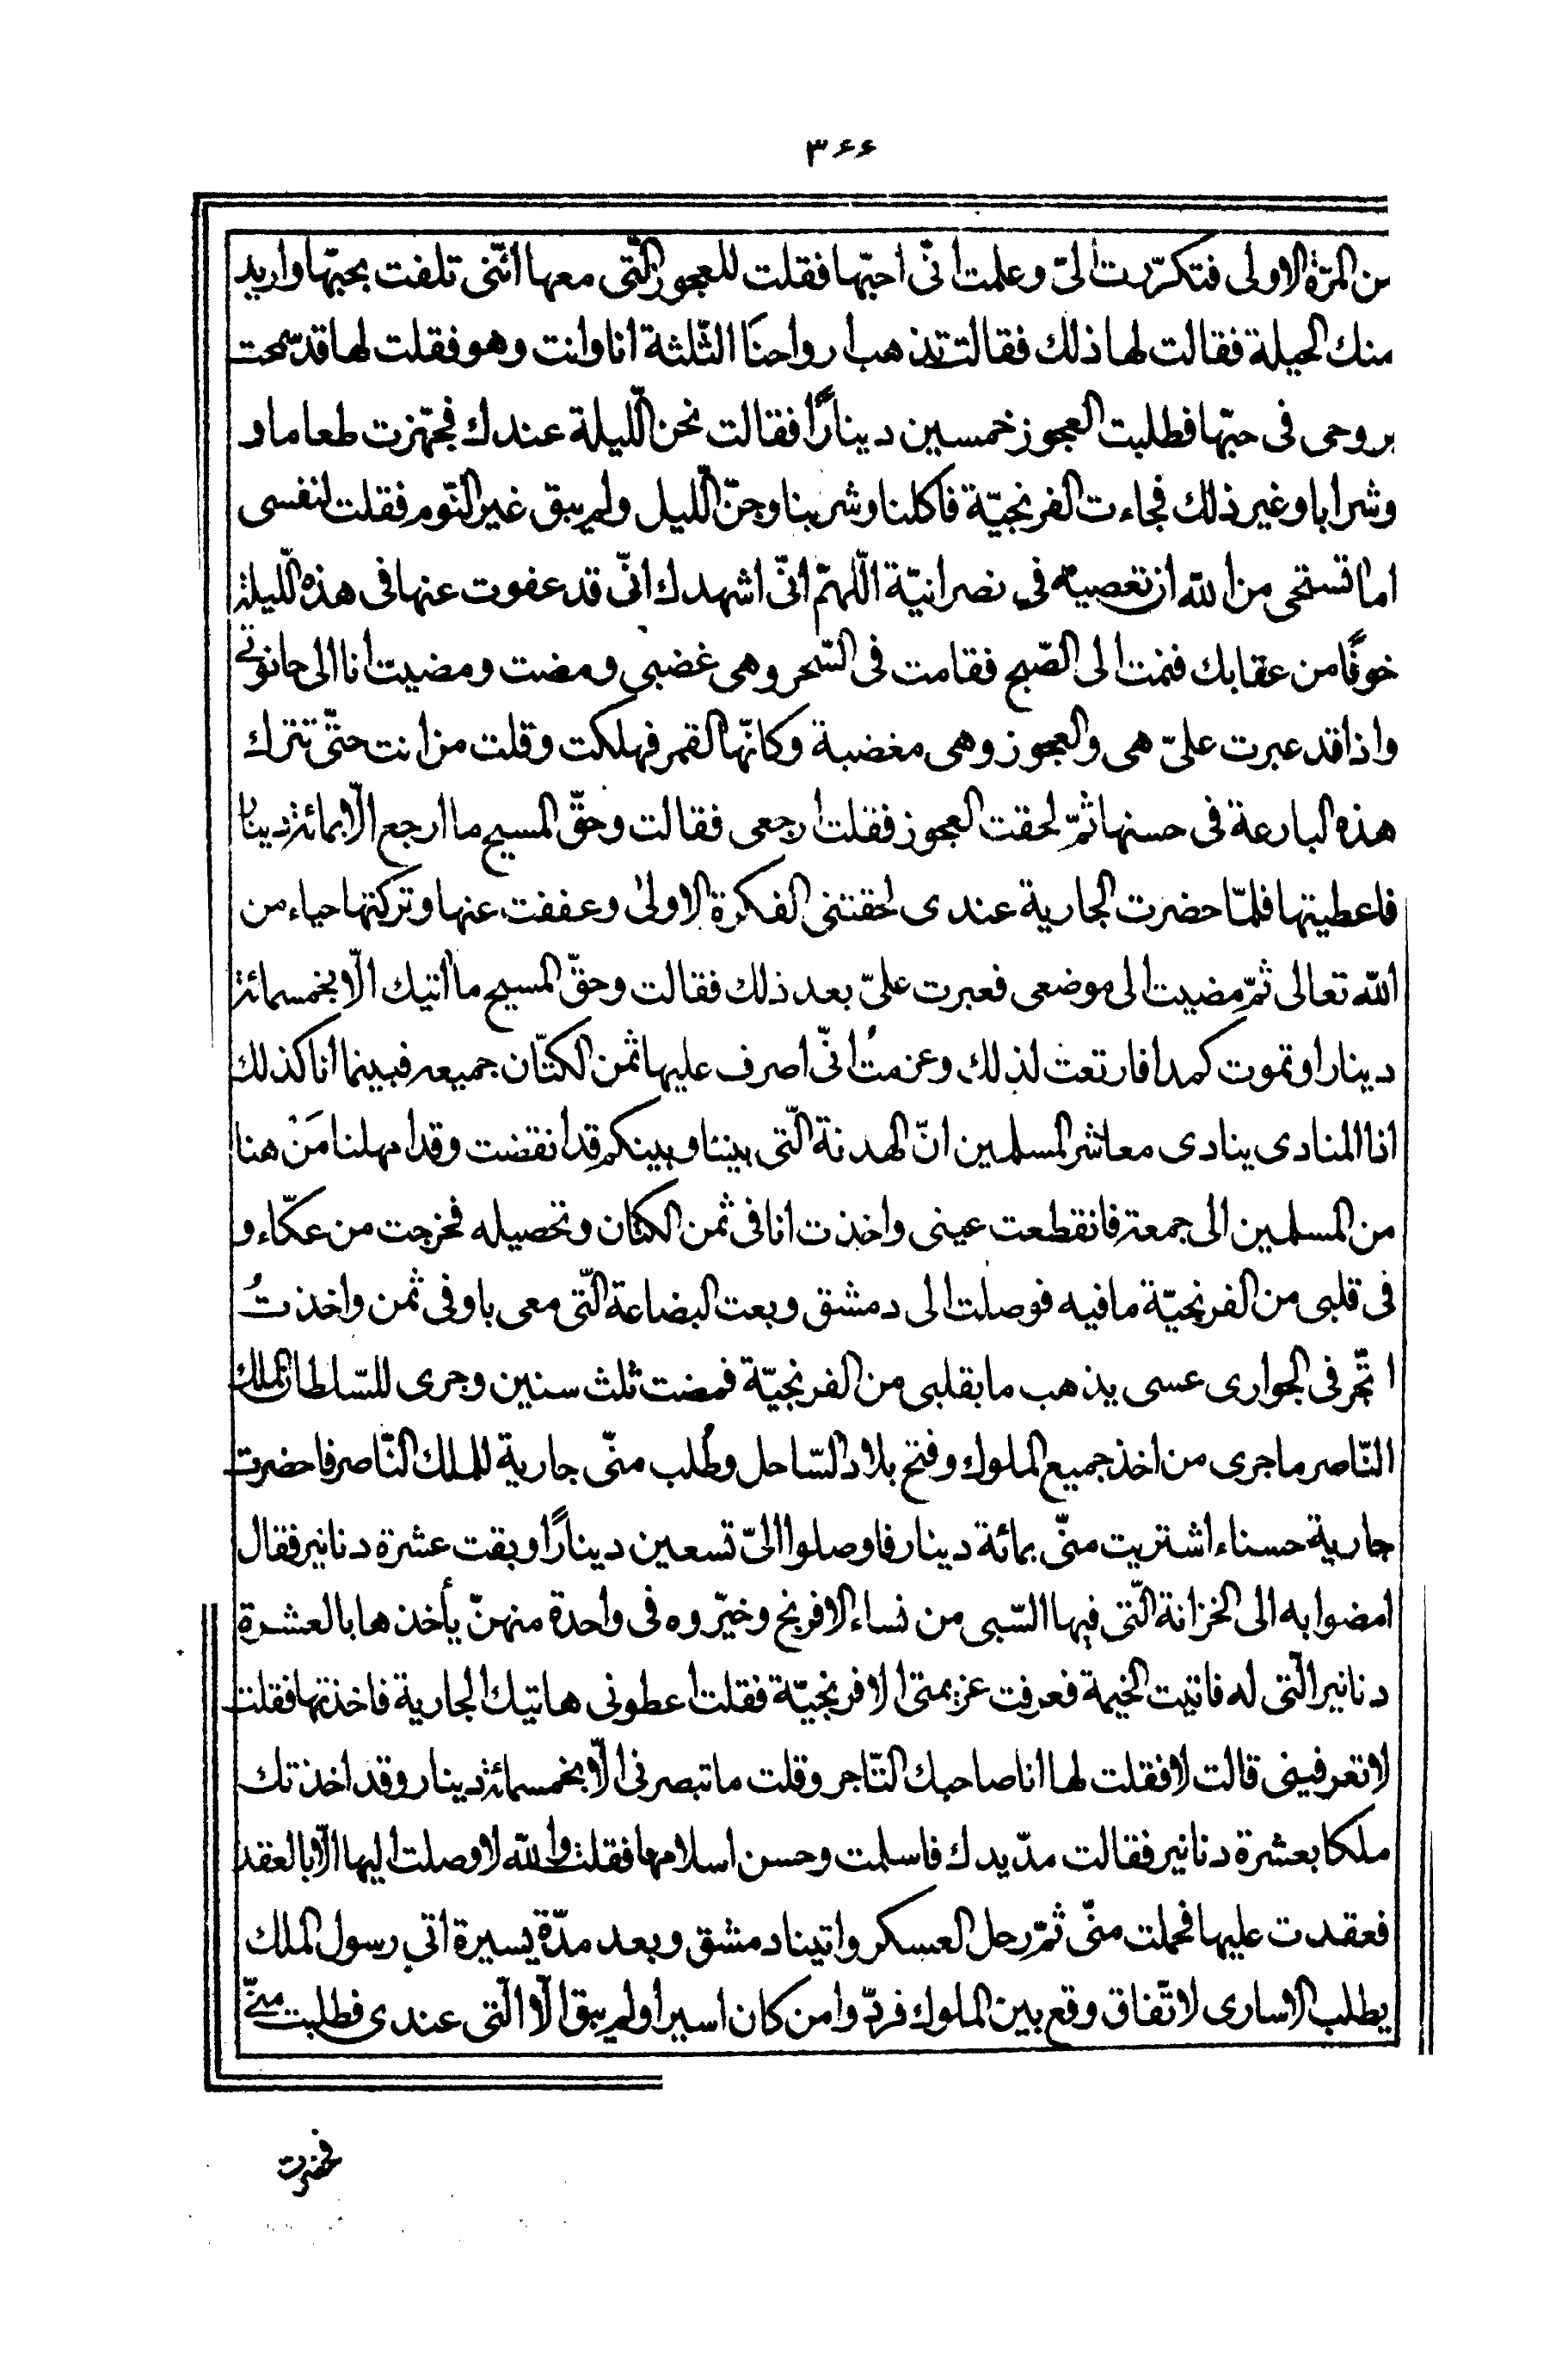 ٣۶۶
من المرّة الاولى فتكرّرت الىّ وعلمت انّى احبّها فقلت للعجوز الّتى معها انّنى تلفت بحبّها واريد
منك الحيلة فقالت لها ذلك فقالت تذهب ارواحنا الثّلثة انا وانت وهو فقلت لها قد سمحت
بروحى فى حبّها فطلبت العجوز خمسين دينارًا فقالت نحن اللّيلة عندك فجهّزت طعاما و
وشرابا وغير ذلك فجاءت الفرنجيّة فاكلنا وشربنا وجنّ اللّيل ولم يبق غير النّوم فقلت لنفسى
اما تستحى من الله ان تعصيه فى نصرانيّة اللّهمّ انّى اشهدك انّى قد عفوت عنها فى هذه اللّيلة
خوفًا من عقابك فنمت الى الصّبح فقامت فى السّحر وهى غضبى ومضت ومضيت انا الى حانوتى
واذا قد عبرت علىّ هى والعجوز وهى مغضبة وكانّها القمر فهلكت وقلت من انت حتّى تترك
هذه البارعة فى حسنها ثمّ لحقت العجوز فقلت ارجعى فقالت وحقّ المسيح ما ارجع الّا بمائة دينار
فاعطيتها فلمّا حضرت الجارية عندى لحقتنى الفكرة الاولىٰ وعففت عنها وتركتها حياء من
الله تعالى ثمّ مضيت الى موضعى فعبرت علىّ بعد ذلك فقالت وحقّ المسيح ما اتيك الّا بخمسمائة
دينار او تموت كمدا فارتعت لذلك وعزمتُ انّى اصرف عليها ثمن الكتّان جميعه فبينما انا كذلك
اذا المنادى ينادى معاشر المسلمين انّ الهدنة الّتى بيننا وبينكم قد انقضت وقد امهلنا مَنْ هنا
من المسلمين الى جمعة فانقطعت عينى واخذت انا فى ثمن الكتان وتحصيله فخرجت من عكّاء و
فى قلبى من الفرنجيّة ما فيه فوصلت الى دمشق وبعت البضاعة الّتى معى باوفى ثمن واخذتُ
اتّجر فى الجوارى عسى يذهب ما بقلبى من الفرنجيّة فمضت ثلث سنين وجرى للسّلطان الملك
النّاصر ما جرى من اخذ جميع الملوك وفتح بلاد السّاحل وطُلب منّى جارية للملك النّاصر فاحضرت
جارية حسناء اشتريت منّى بمائة دينار فاوصلوا الىّ تسعين دينارًا وبقت عشرة دنانير فقال
امضوا به الى الخزانة الّتى فيها السّبى من نساء الافرنج وخيّروه فى واحدة منهنّ يأخذها بالعشرة
دنانير الّتى له فاتيت الخيمة فعرفت عزيمتى الافرنجيّة فقلت اعطونى هاتيك الجارية فاخذتها فقلت
لا تعرفينى قالت لا فقلت لها انا صاحبك التّاجر وقلت ما تبصرنى الّا بخمسمائة دينار وقد اخذتك
ملكا بعشرة دنانير فقالت مدّ يدك فاسلمت وحسن اسلامها فقلت والله لا وصلت اليها الّا بالعقد
فعقدت عليها فحملت منّى ثمّ رحل العسكر واتينا دمشق وبعد مدّة يسيرة اتى رسول الملك
يطلب الاسارى لاتّفاق وقع بين الملوك فردّوا من كان اسيرا ولم يبق الّا الّتى عندى فطلبت منّى
فحضرت